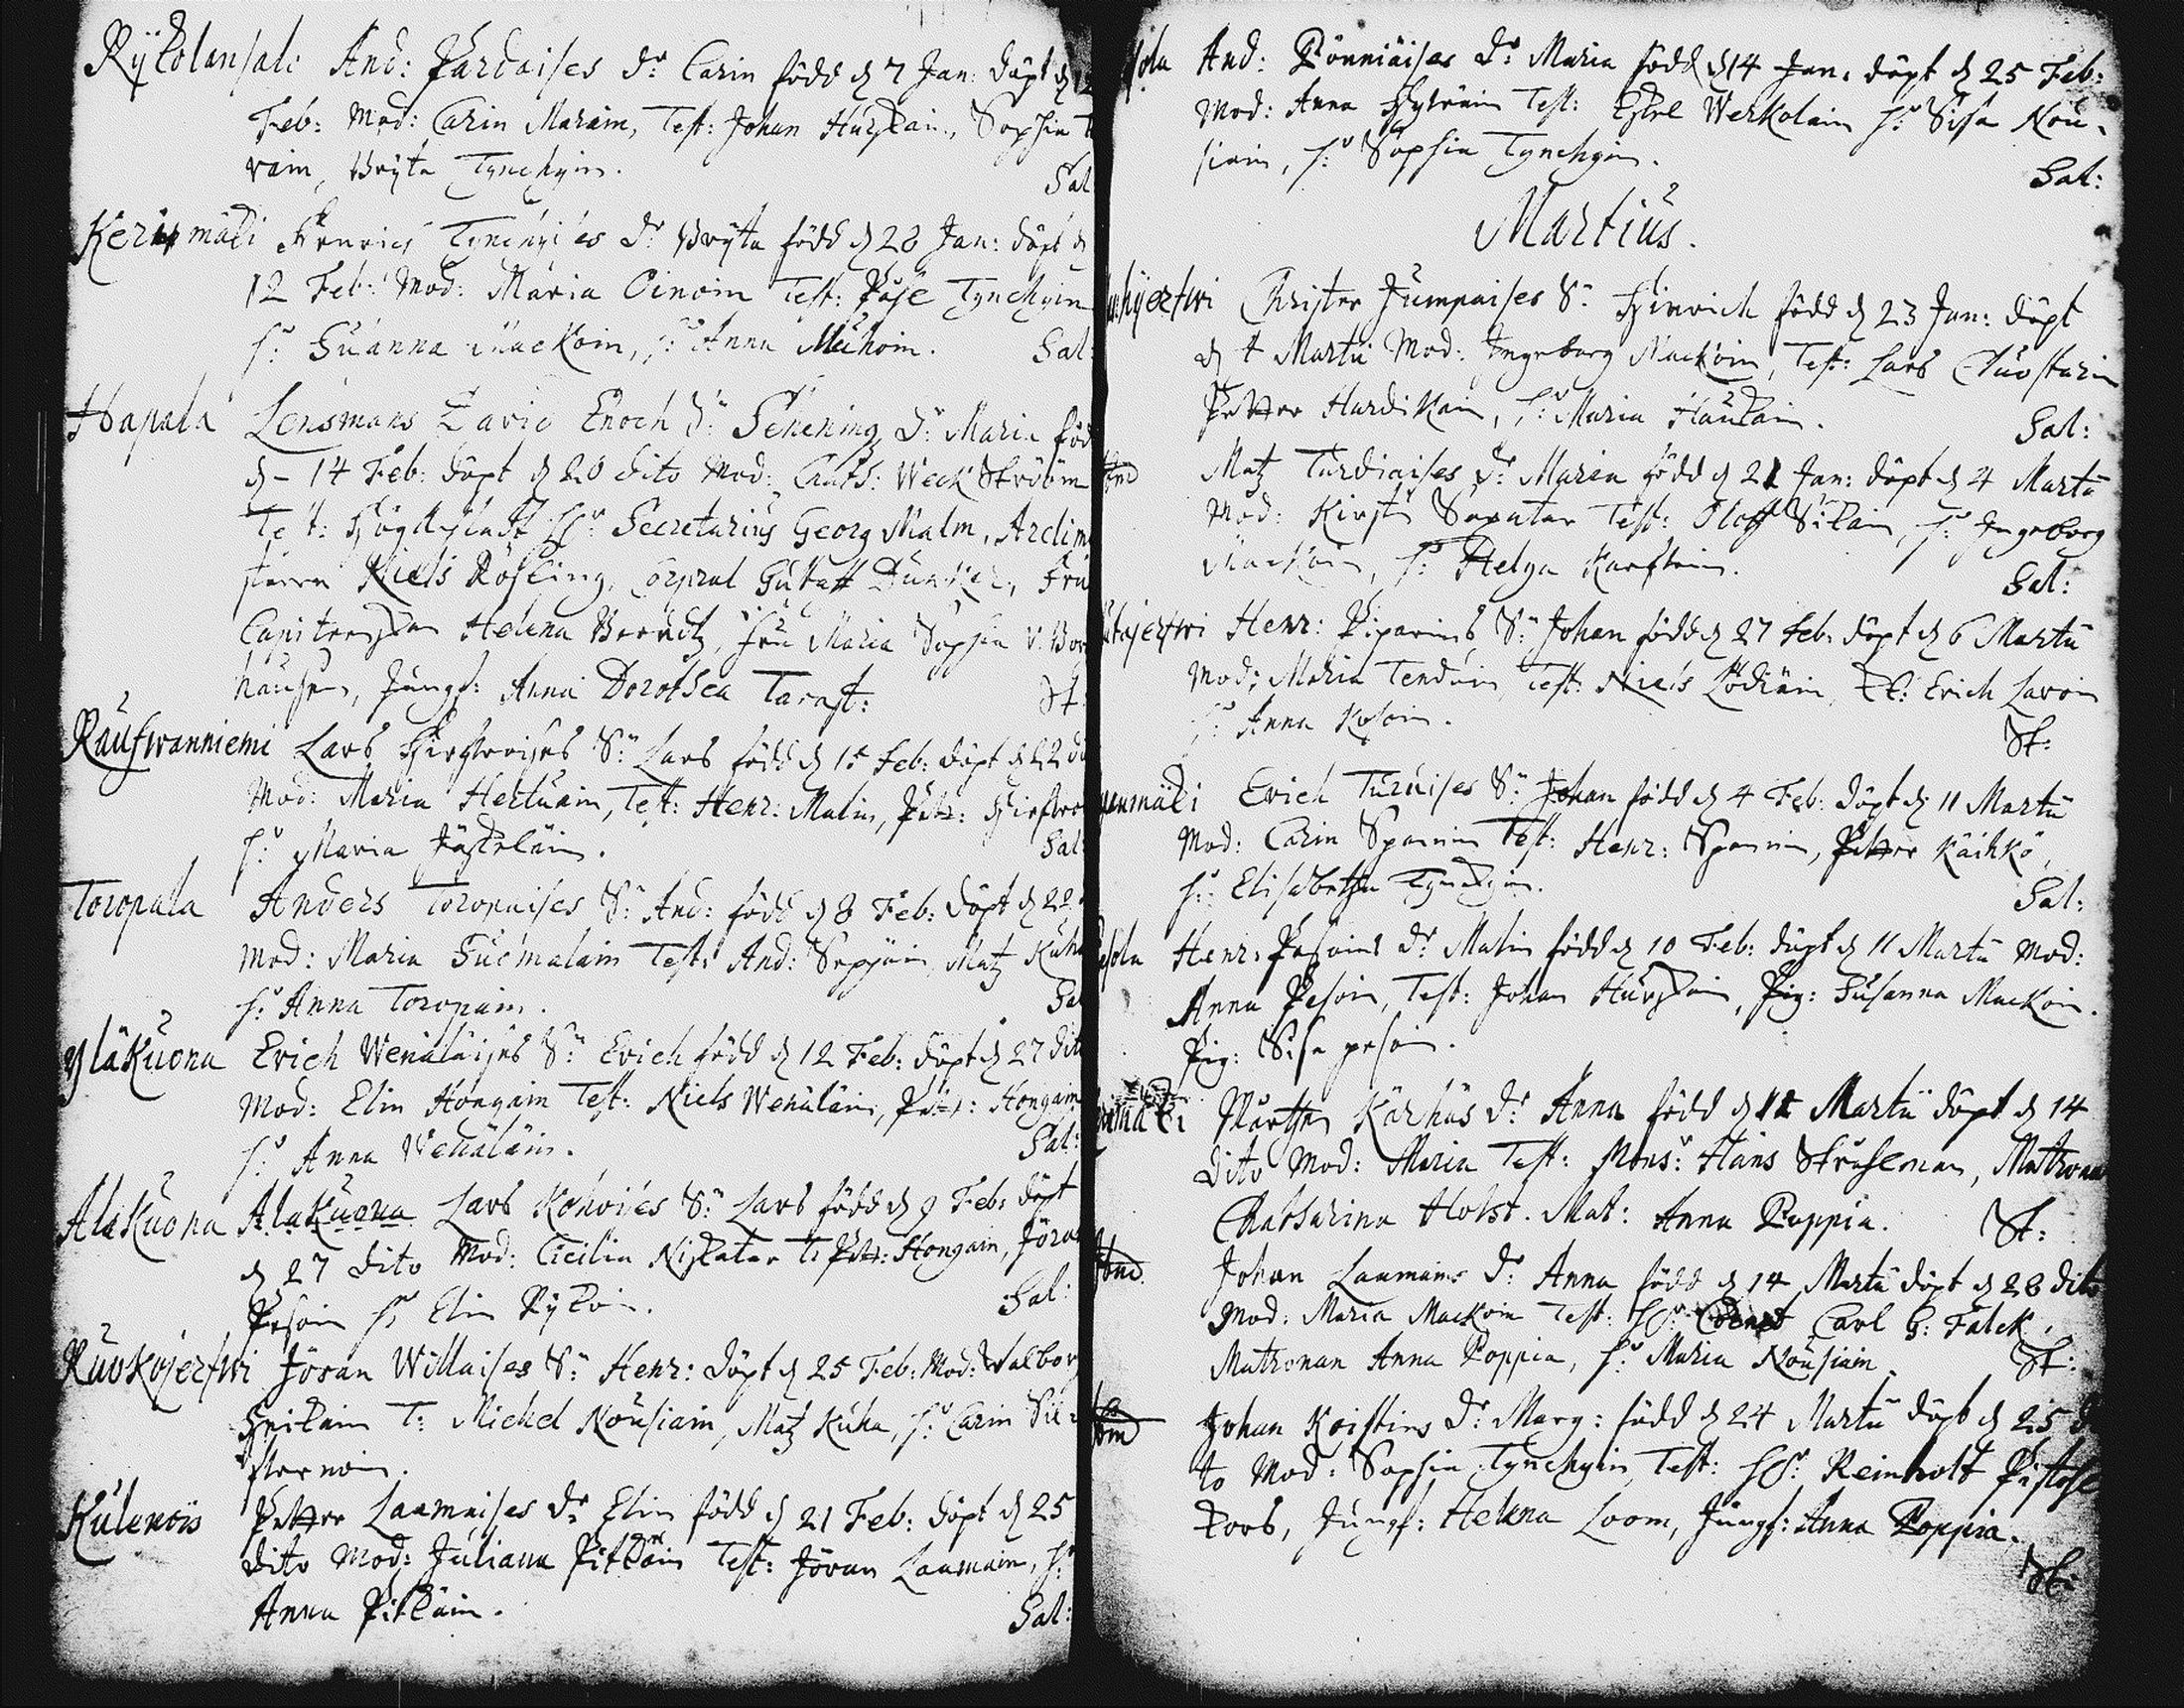 Rÿkolansali And: Pardaises Dr Carin född d 7 Jan: döpt d 12
Feb: Mod: Carin Marain, Test: Johan Hurskain, Sophia
rain, Bryta Tynchyin.
Sal
Kerismäki Henrich Tynchyies Dr Bryta född d 28 Jan: döpt d
12 Feb: Mod: Maria Oinoin Test: Påse Tynchyin
h: Susanna Mackoin, h: Anna Muhoin. Sal:
Hapala Lensmans David Enoch Sn Sehening Dr Maria föd
d 14 Feb: döpt d 20 dito Mod: Cath: Weck Ström
Test: Secretarius Georg Malm, Arclim
Niels Rösling, Corpral Gustaff Duncker, Fru
Helena Berndtz, fru Maria Sophia v. Bor
hausen, Jungf: Anna Dorothea Tarast: St:
Raufwanniemi Lars Sn Lars född d 15 Feb: döpt d 22 di
Mod: Maria Hertuain, Test: Henr: Malin, Pett:
h: Maria Jäskeläin. Sal:
Toropala Anders Toropaises Sn And: född d 8 Feb: döpt d 22
Mod: Maria Test: And: Seppäin, Matz Kuha
h: Anna Toropain. Sal
Yläkuona Erich Wenäläises Sn Erich född d 12 Feb: döpt d 27 dito
Mod: Elin Hongain Test: Niels Wenäläin, Pett: Hongain
h: Anna Wenäläin. Sal:
Alakuona Alakuona Lars Kohoies Sn Lars född d 9 Feb: döpt
d 27 dito Mod: Cicilia Niskatar T: Pett: Hongain, Jöran
Pesoin h: Elin Rÿkoin. Sal:
Ruokojerfwi Jöran Willaises Sn Henr: döpt d 25 Feb: Mod: Walbor
Heikain T: Michel Nousiain, Matz Kuha, h: Carin Sil
fwernoin.
Kulenois Petter Laamaises Dr Elin född d 21 Feb: döpt d 25
dito Mod: Juliana Pitkäin Test: Jöran Laamain, h:
Anna Pitkäin. Sal:
sola And: Rönniäises Dr Maria född d 14 Jan: döpt d 25 Feb:
Mod: Anna Hyrväin Test: Eskel Werkolain h: Sisa Nou-
siain, h: Sophia Tynchyin. Sal:
Martius.
hyerfwi Christer Jumpaises Sn Hinrich född d 23 Jan: döpt
d 4 Martii Mod: Ingeborg Mackoin, Test: Lars
Petter Hardikain, h: Maria Haukain. Sal:
Matz Turdiaises Dr Maria född d 21 Jan: döpt d 4 Martii
Mod: Kirstin Sapatar Test: Oloff Silain, h: Ingeborg
Mackoin, h: Helga Karstein. Sal:
tajerfwi Henr: Piparins Sn Johan född d 27 Feb: döpt d 6 Martii
Mod: Maria Tenduin Test: Niels Lödiäin, Erich Lavoin
h: Anna Kosoin. St:
enmäki Erich Turuises Sn Johan född d 4 Feb: döpt d 11 Martii
Mod: Carin Spanin Test: Henr: Spanin, Petter Käihkö,
h: Elisabetha Tynchyin. Sal:
esola Henr: Pesoins Dr Malin född d 10 Feb: döpt d 11 Martii Mod:
Anna Pesoin, Test: Johan Hurskain, Pig: Susanna Mackoin.
Pig: Sisa pesoin.
mäki Mårthen Karhus Dr Anna född d 11 Martii döpt d 14
dito Mod: Maria Test: Mons: Hans Struseman, Matrona
Chatharina Holst. Mat: Anna Poppia. St:
Johan Laamains Dr Anna född d 14 Martii döpt d 28 dito
Mod: Maria Mackoin Test: Hr: Cornet Carl G: Falck,
Matronan Anna Poppia, h: Maria Nousiain. St:
Johan Koistins Dr Marg: född d 24 Martii döpt d 25 di
to Mod: Sophia Tynchyin Test: Hr: Reinholt Pistole
kors, Jungf: Helena Loom, Jungf: Anna Poppia.
St: